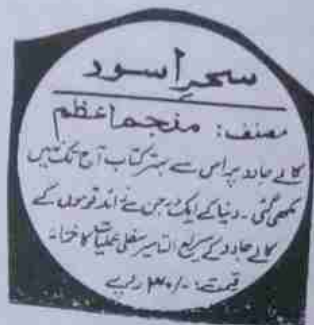 سحرِ اسود
مصنف: منجم اعظم
کالے جادو پر اس سے بہتر کتاب آج تک نہیں
لکھی گئی۔ دنیا کے ایک درجن سے زائد قوموں کے
کالے جادو کے سریع التاثیر سفلی عملیات کا خزانہ
قیمت: -/۳۰ روپے